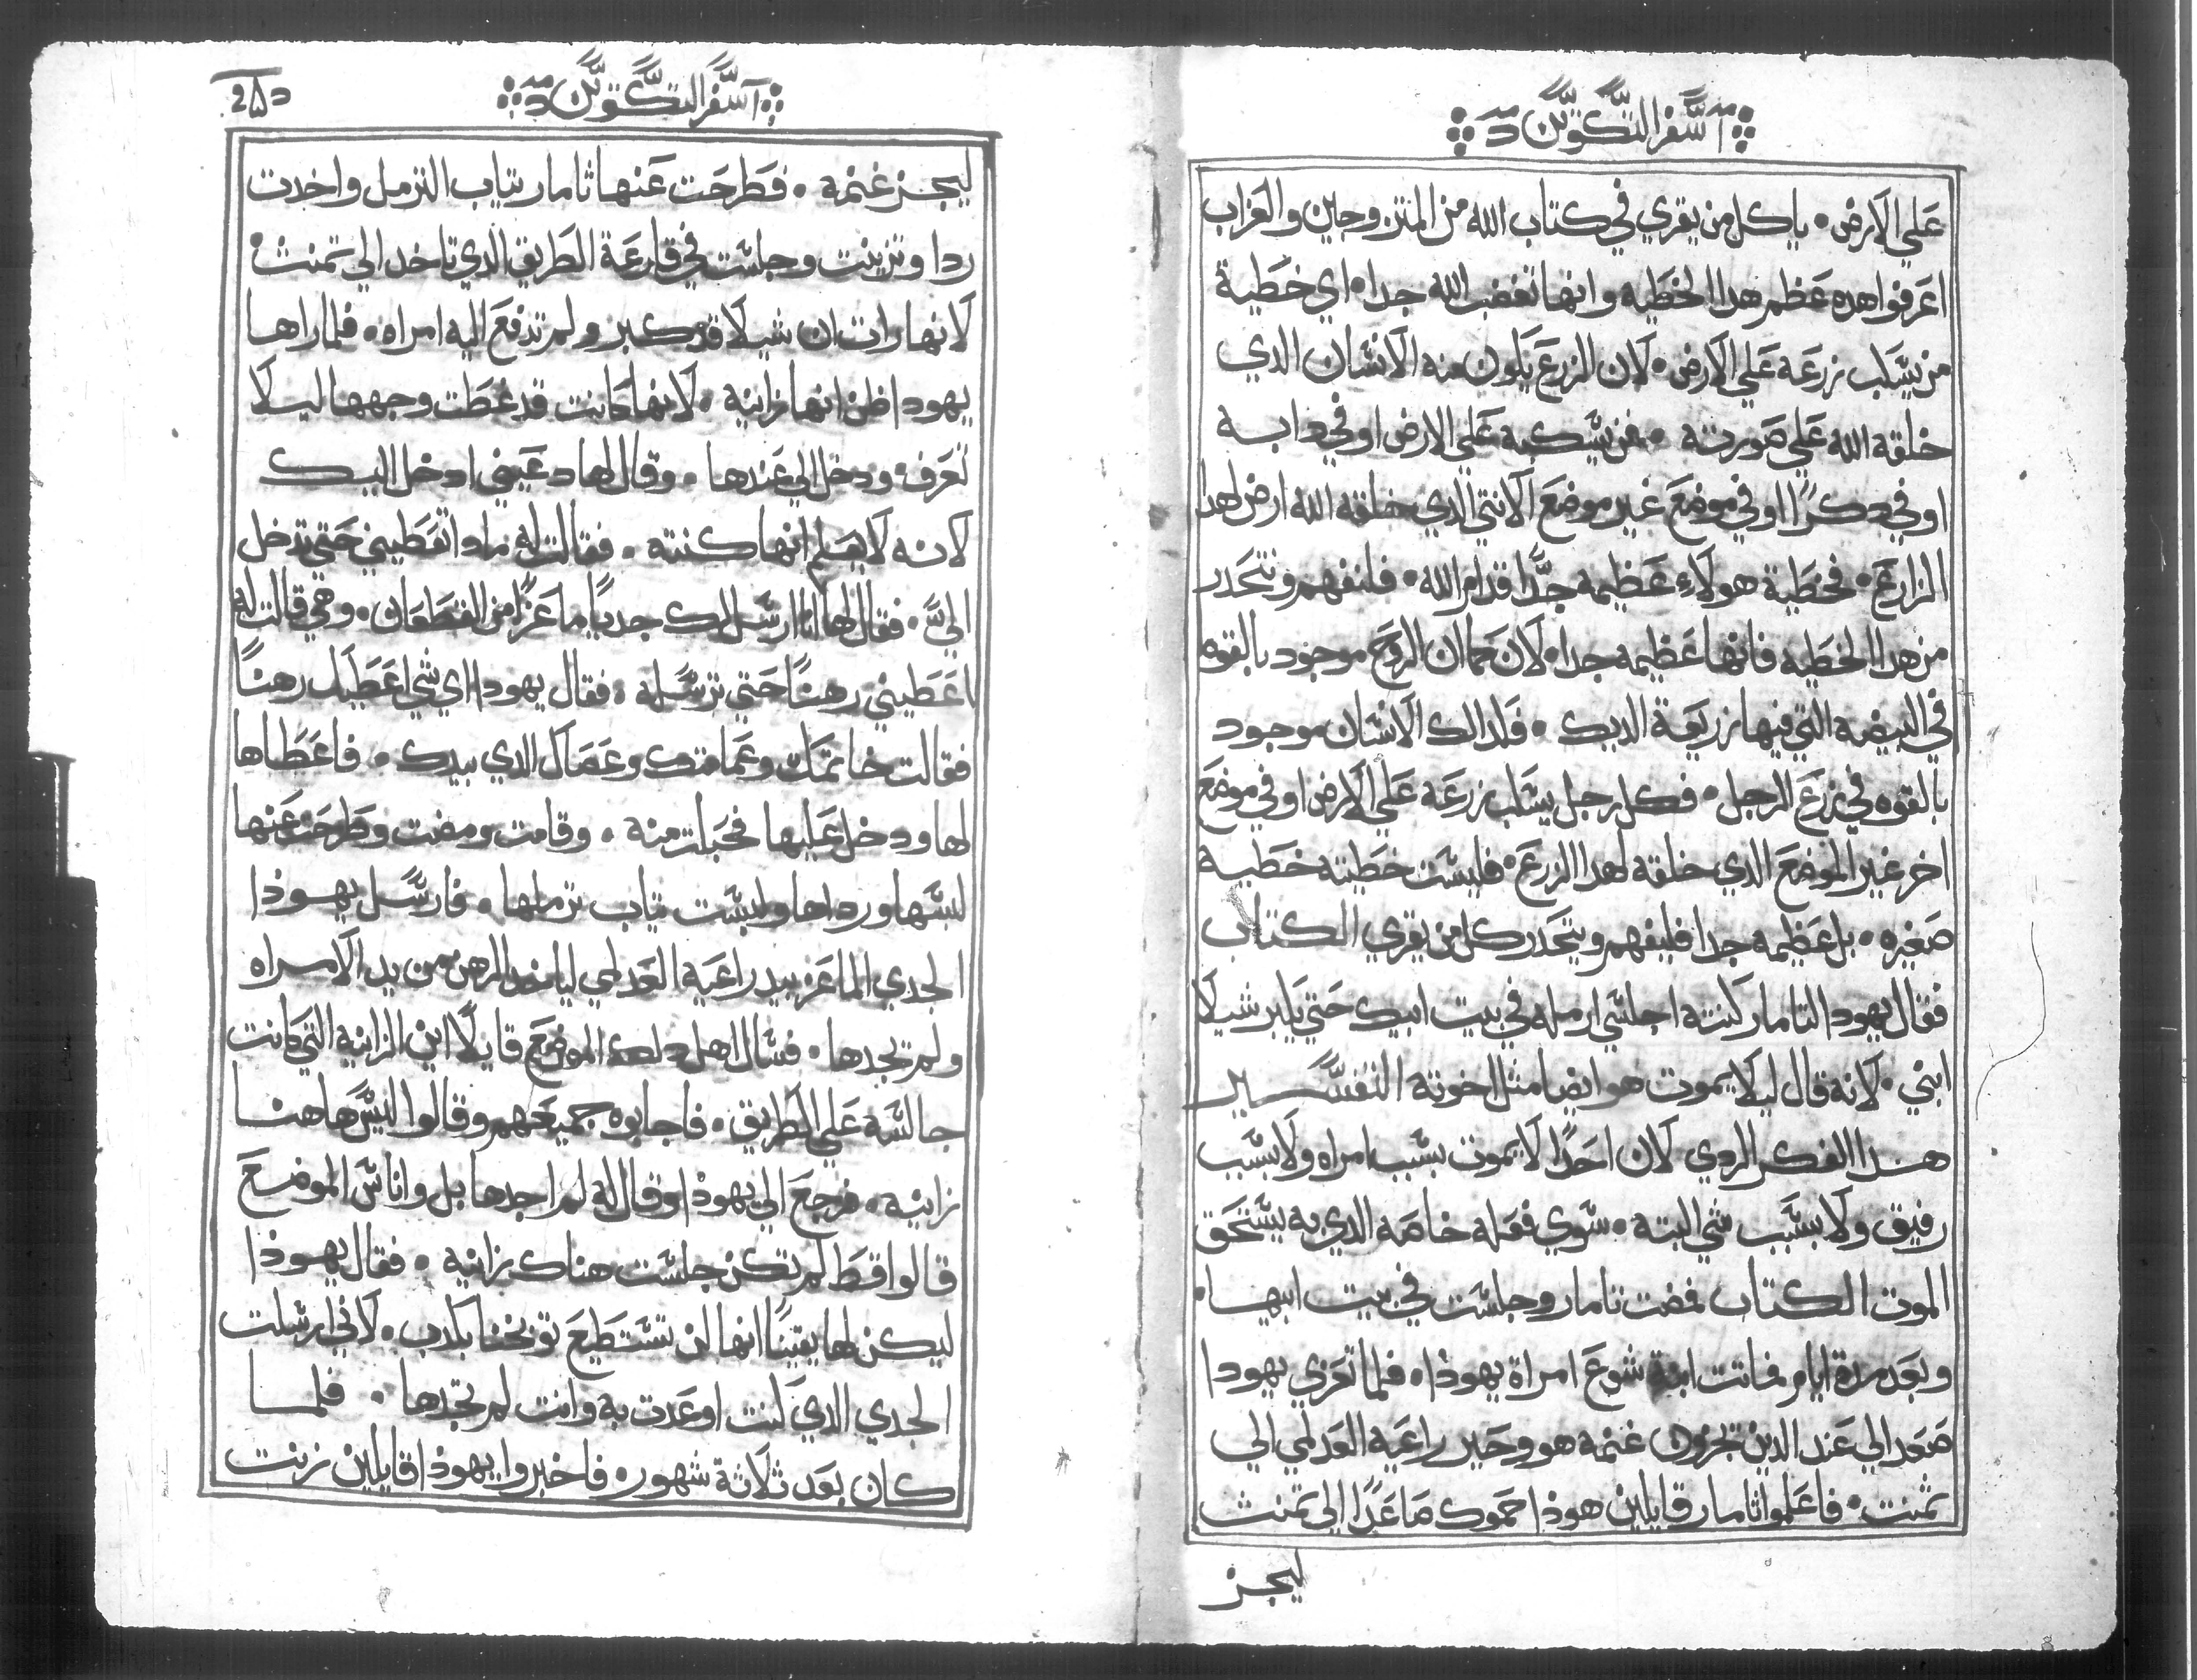 سفر التكوين
علي الارض · ياكل من يقري في كتاب الله من المتزوجين والعزاب
اعرفوا هده عظم هدا الخطيه وانها تغضب الله جدا · اي خطية
من يسكب زرعه علي الارض · لان الزرع يكون منه الانسان الدي
خلقه الله علي صورته · فمن يسكبه علي الارض او في دابه
او في دكرًا او في موضع غير موضع الانتي الدي خلقه الله ارض لهدا
الزارع · فخطية هولاء عظيمه جدًا قدام الله · فلنفهم ونتحدر
من هدا الخطيه فانها عظيمه جدا · لان كما ان الروح موجود بالقوه
في البيضه التي فيها زريعة الديك · فلدالك الانسان موجود
بالقوه في زرع الرجل · فكل رجل يسكب زرعه علي الارض او في موضع
اخر غير الموضع الدي خلقه لهدا الزرع · فليست خطيته خطيه
صغيره · بل عظيمه جدا فليفهم ويتحدر كل من يقري الكتاب
فقال يهودا لتامار كنته اجلسي ارمله في بيت ابيك حتي يكبر شيلا
ابني · لانه قال ليلا يموت هو ايضا مثل اخوته التفسير
هدا الفكر الردي لان احدًا لا يموت بسبب امراه ولا بسبب
رفيق ولا بسبب شي البته · سوي فعله خاصه الدي به يستحق
الموت الكتاب فمضت تامار وجلست في بيت ابيها ·
وبعد مدة ايام فماتت ابنة شوع امراة يهوذا · فلما تعزي يهودا
صعد الي عند الدين تجزون غنمه هو وحير راعيه العدلمي الي
تمنت · فاعلموا ثامار قايلين هوذا حموك صاعدًا الي تمنث
ليجز
سفر التكوين
ليجز غنمه · فطرحت عنها ثامار تياب الترمل واخدت
ردا وتزينت وجلست في قارعة الطريق الدي تاخد الي تمنث ·
لانها رات ان شيلا قد كبر ولم تدفع اليه امراه · فلما راها
يهودا ظن انها زانيه · لانها كانت قد غطت وجهها ليلا
تعرف ودخل الي عندها · وقال لها دعيني ادخل اليك
لانه لا يعلم انها كنته · فقالت له مادا تعطيني حتي تدخل
اليَّ · فقال لها انا ارسل لك جديًا ماعزًا من القطعان · وهي قالت له
اعطيني رهنًا حتي ترسله · فقال يهودا اي شي اعطيك رهنًا
فقالت خاتمك وعمامتك وعصاك الدي بيدك · فاعطاها
لها ودخل عليها فحبلت منه · وقامت ومضت وطرحت عنها
لبسها ورداها ولبست تياب ترملها · فارسل يهوذا
الجدي الماعز بيد راعيه العدلمي لياخد الرهن من يد الامراه
ولم تجدها · فسال اهل الموضع قايلًا اين الزانيه التي كانت
جالسه علي الطريق · فاجابوه جميعهم وقالوا ليس هاهنا
زانيه · فرجع الي يهوذا وقال له لم اجدها بل واناس الموضع
قالوا قط لم تكن جلست هناك زانيه · فقال يهوذا
ليكن لها يقينًا انها لن تستطيع توبخنا بكدب · لاني ارسلت
الجدي الدي كنت اوعدت به وانت لم تجدها · فلما
كان بعد ثلاثة شهور · فاخبروا يهوذا قايلين زنت